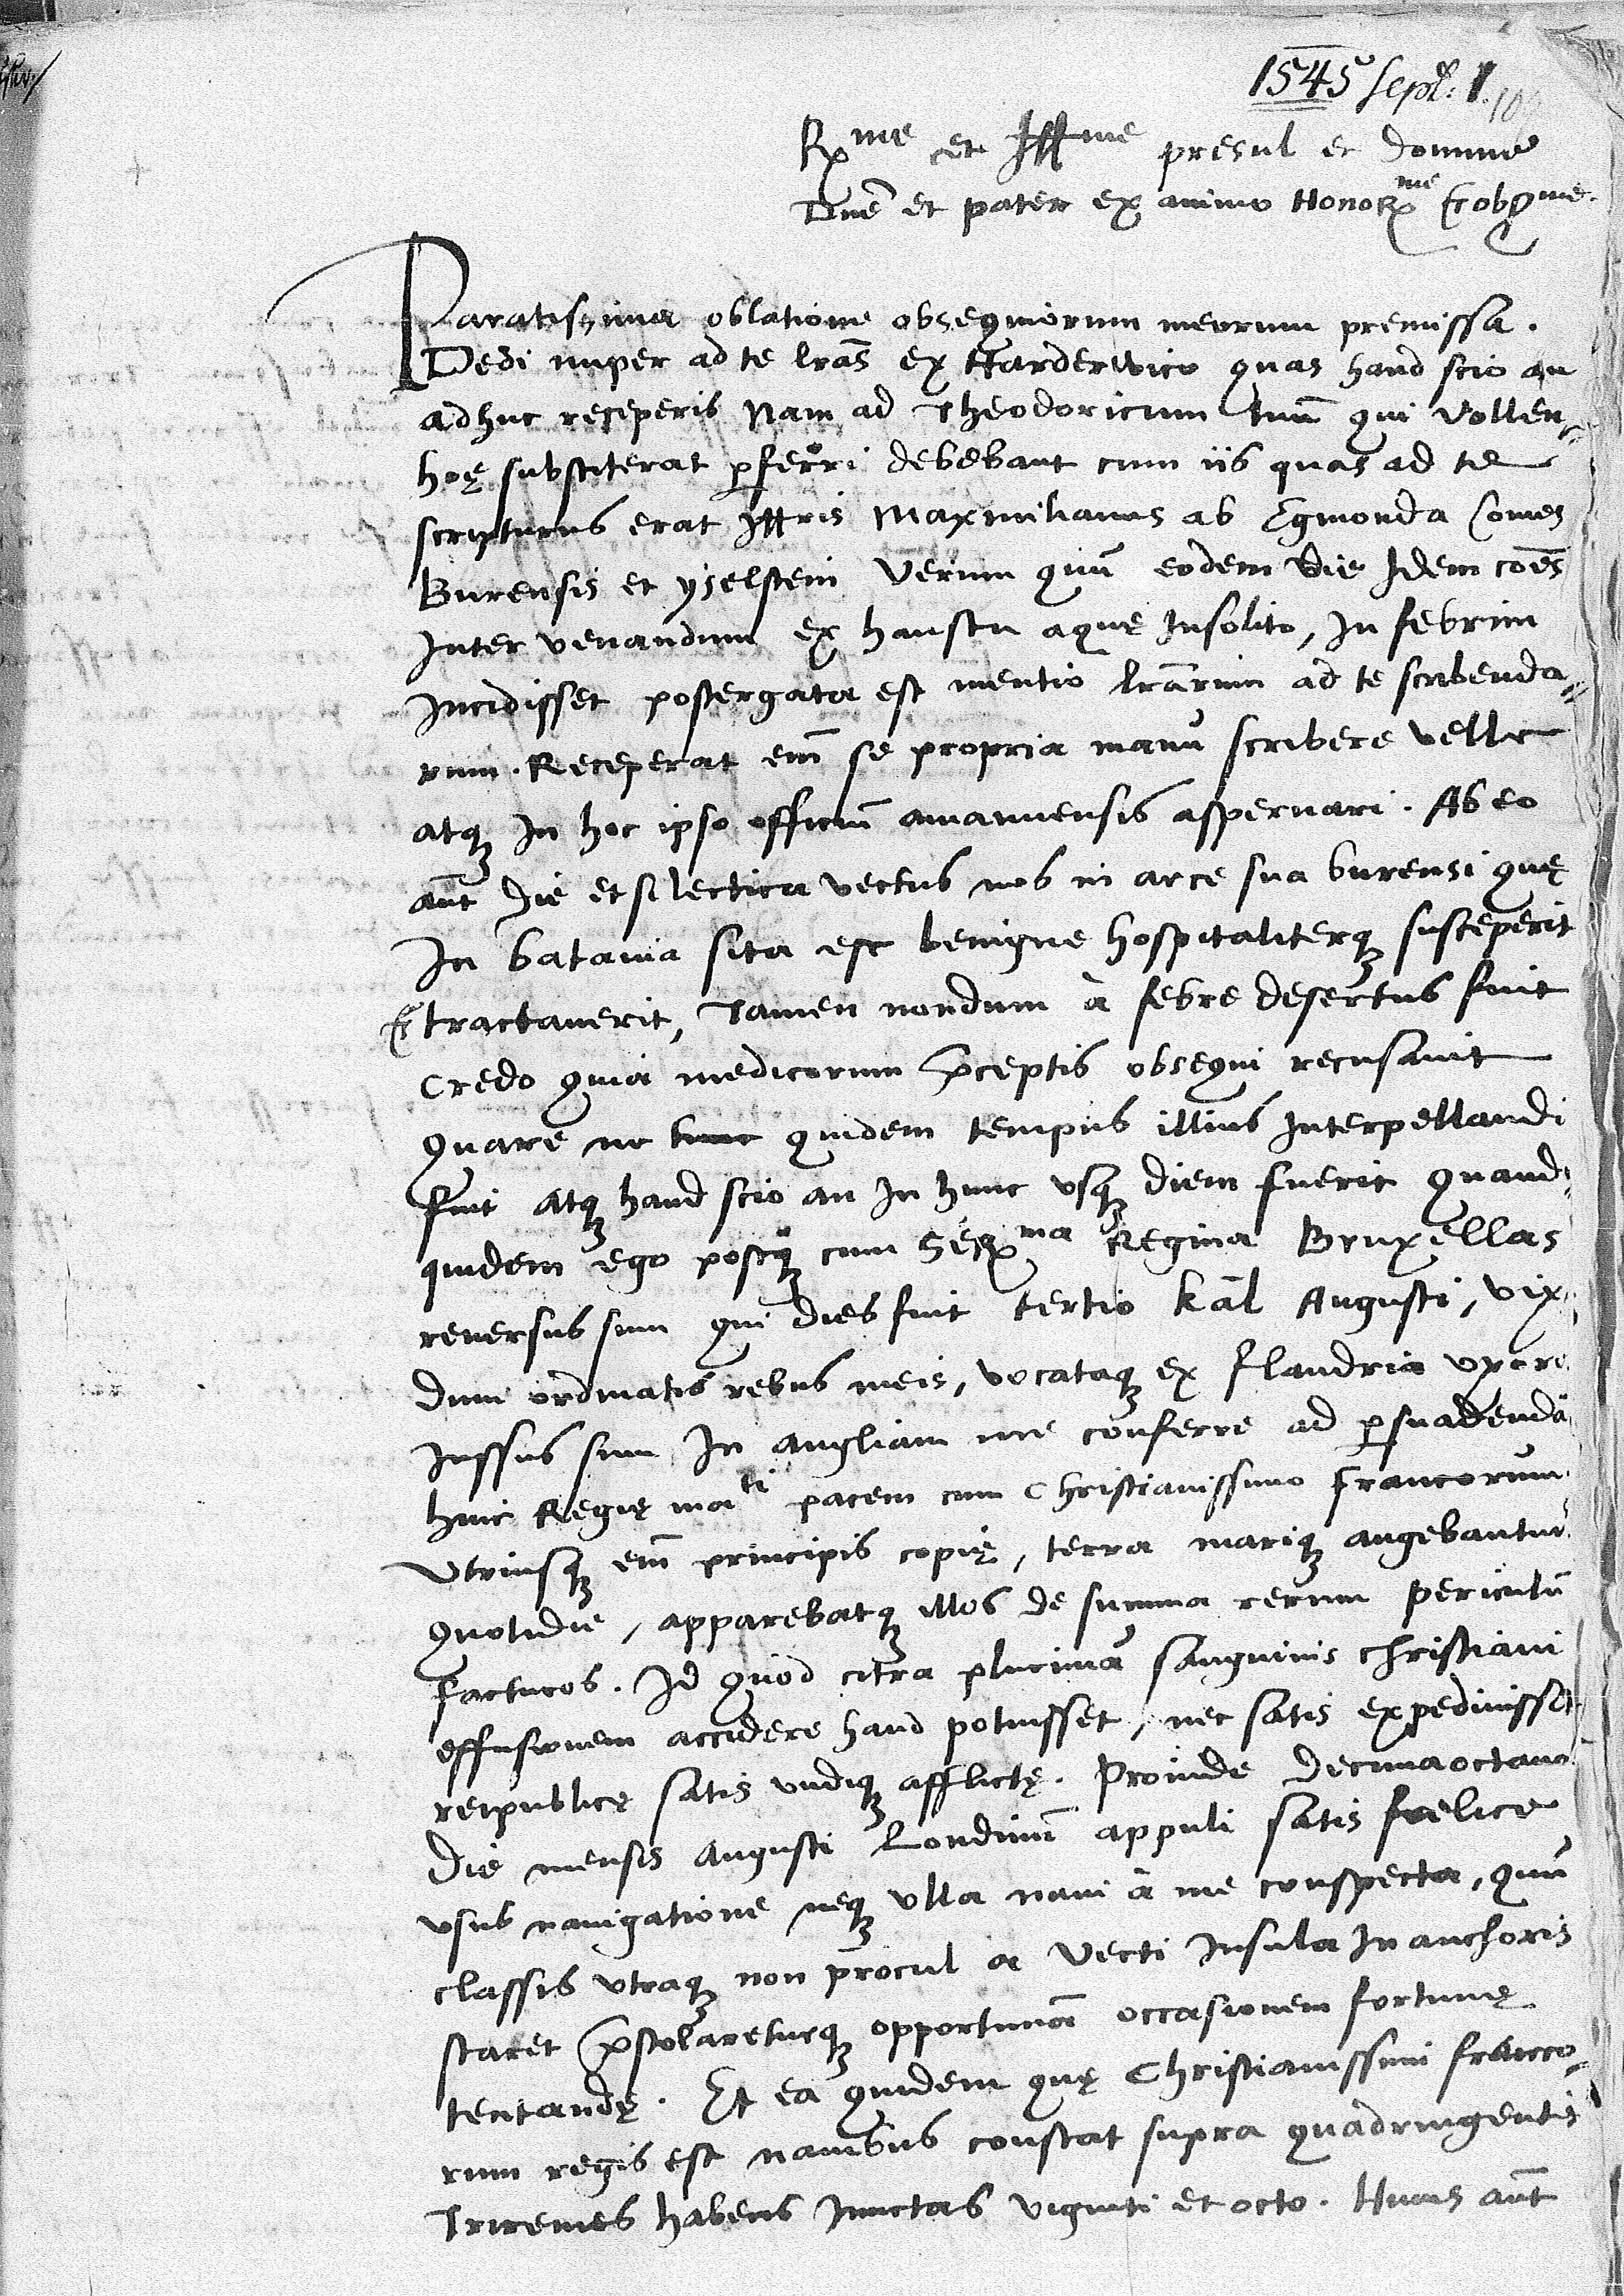 1545 Sept: 1.
Rx^me et Ill^me presul et domine
Dne et pater ex animo Honorx^me Et obs^me.
Paratissima oblatione obsequiorum meorum premissa.
Dedi nuper ad te lras ex Harderwico quas haud scio an
adhuc receperis Nam ad Theodoricum tuu qui Vollen-
hoę substiterat pferri debebant cum iis quas ad te
scripturus erat Illris Maximilianus ab Egmonda Comes
Burensis et yselstein Verum quu eodem die Idem coes
Inter venandum ex haustu aquę Insolito, In febrim
Incidisset postergata est mentio lrarum ad te scribenda-
rum. Receperat em se propria manu scribere velle
atq In hoc ipso officiu amanuensis aspernari. Ab eo
aut die etsi lectica vectus nos in arce sua burensi quę
In batavia sita est benigne hospitaliterq susceperit
Et tractaverit, Tamen nondum à febre desertus fuit
Credo quia medicorum pceptis obsequi recusavit
Quare ne tunc quidem tempus illius Interpellandi
fuit atq haud scio an In hunc usq diem fuerit Quand-
quidem ego postq cum Serx^ma Regina Bruxellas
reversus sum qui dies fuit tertio kal Augusti, vix-
dum ordinatis rebus meis, vocataq ex flandria uxore
Iussus sum In angliam me conferre ad psuadenda
huic Regię ma^ti pacem cum Christianissimo francorum
Utriusq em principis copię, terra mariq augebantur
Quotidie, apparebatq illos de summa rerum periculu
facturos. Id quod citra plurima sanguinis christiani
effusionem accidere haud potuisset, nec satis expedivisset
reipublicę satis undiq afflictę. Proinde decimaoctavo
die mensis Augusti Londinu appuli satis foelice
usus navigatione neq ulla navi à me conspecta, quu
classis utraq non procul a Vecti Insula In anchoris
staret pstolareturq opportuna occasionem fortunę
tentandę. Et ea quidem quę Christianissimi franco-
rum regis est navibus constat supra quadringentis
Triremes habens Iunctas viginti et octo. Huius aut